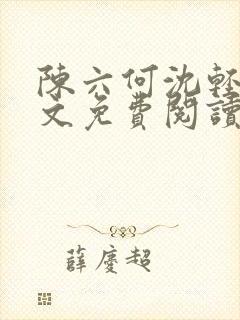 陳六何沈輕
文免費閱讀
薛慶超